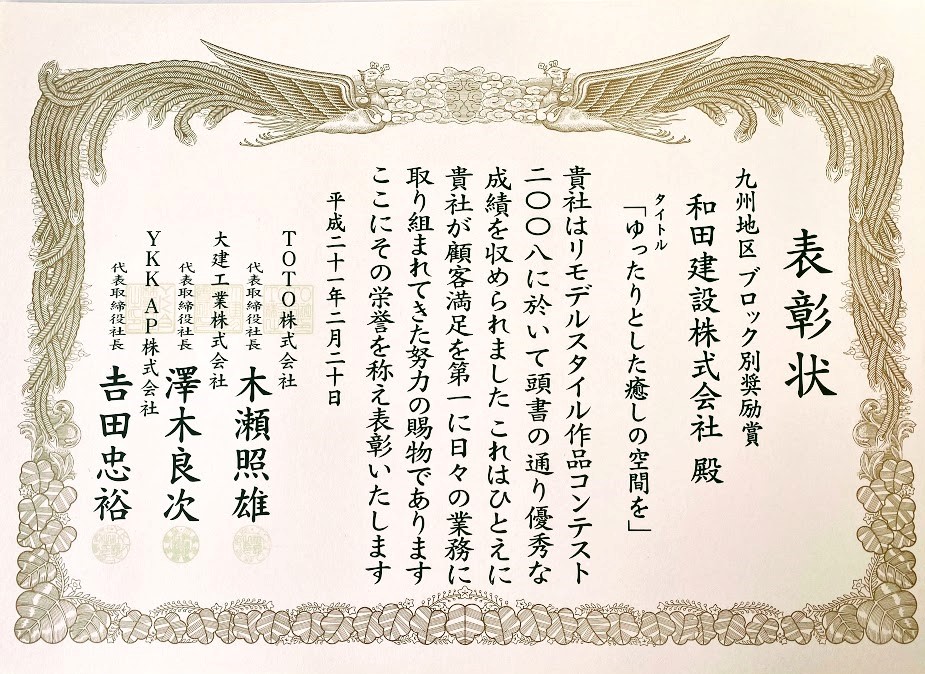 表彰状
九州地区ブロック別奨励賞
和田建設株式会社 殿
タイトル
「ゆったりとした癒しの空間を」
貴社はリモデルスタイル作品コンテスト
二〇〇八に於いて頭書の通り優秀な
成績を収められました これはひとえに
貴社が顧客満足を第一に日々の業務に
取り組まれてきた努力の賜物であります
ここにその栄誉を称え表彰いたします
平成二十一年二月二十日
TOTO株式会社
代表取締役社長 木瀬照雄
大建工業株式会社
代表取締役社長 澤木良次
YKK AP株式会社
代表取締役社長 𠮷田忠裕